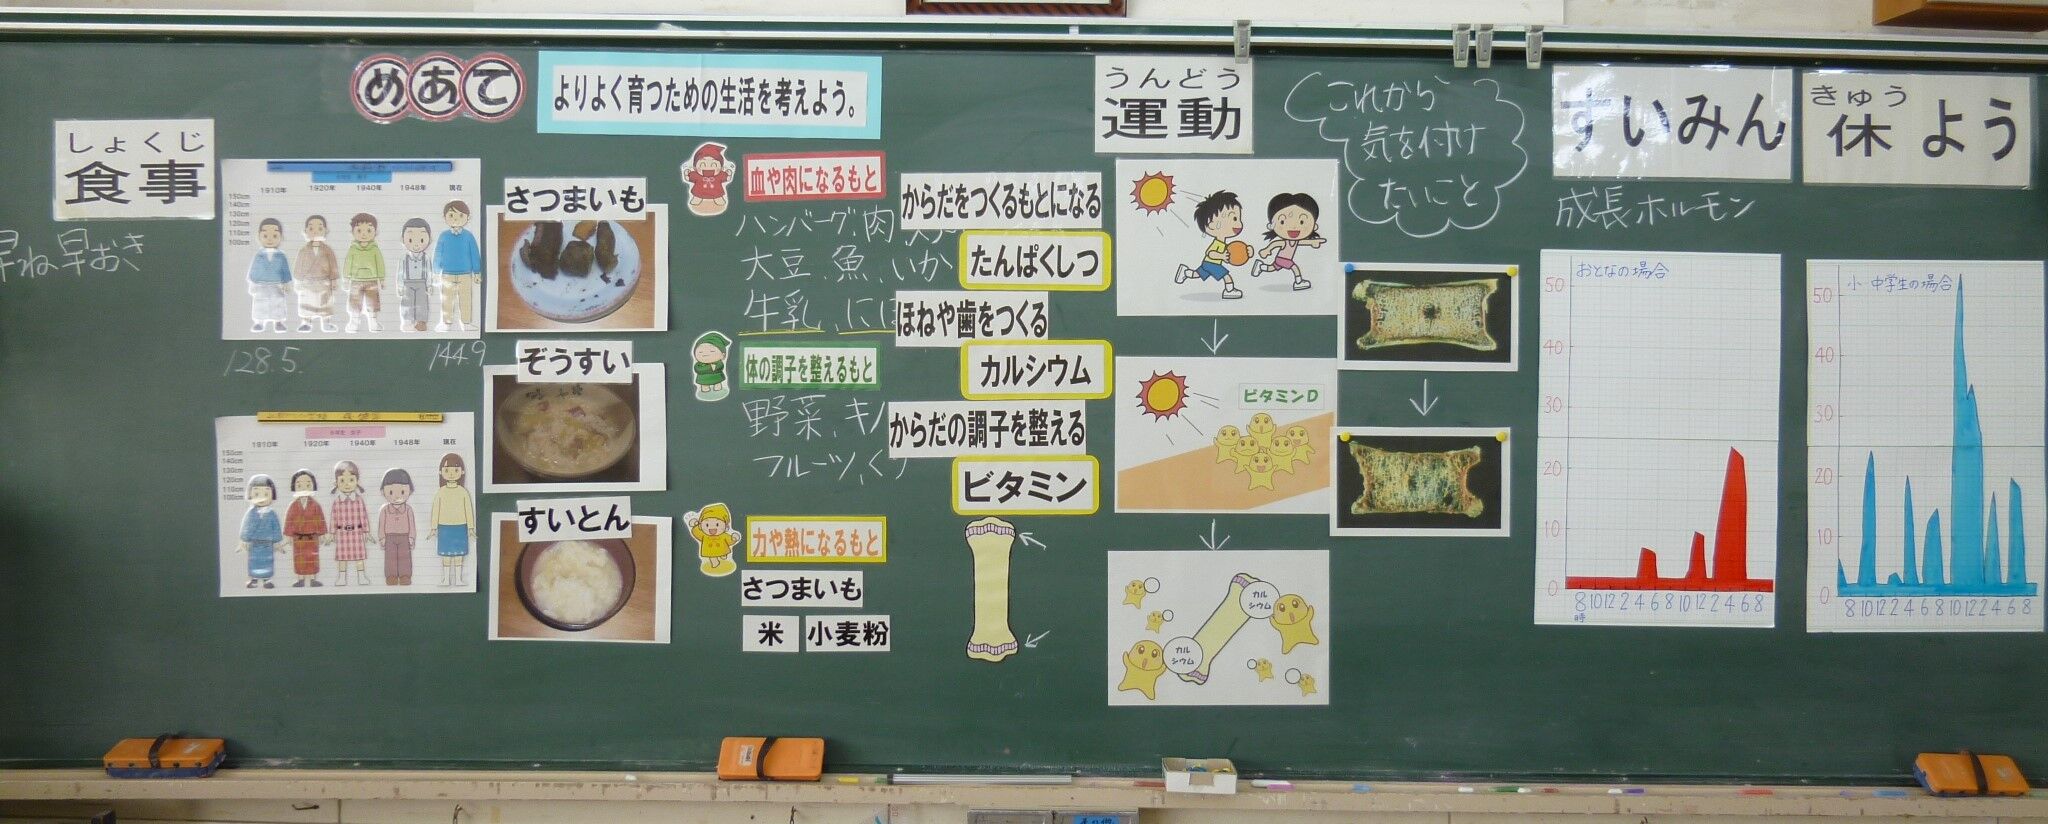 めあて
よりよく育つための生活を考えよう。
しょくじ
食事
早ね早おき
1910年 1920年 1940年 1948年 現在
150cm
140cm
130cm
120cm
110cm
100cm
128.5.
144.9
1910年 1920年 1940年 1948年 現在
150cm
140cm
130cm
120cm
110cm
100cm
さつまいも
ぞうすい
すいとん
血や肉になるもと
ハンバーグ,肉
大豆、魚、いか
牛乳、に
体の調子を整えるもと
野菜、キノ
フルーツ、くり
力や熱になるもと
さつまいも
米 小麦粉
からだをつくるもとになる
たんぱくしつ
ほねや歯をつくる
カルシウム
からだの調子を整える
ビタミン
うんどう
運動
ビタミンD
カル
シウム
カル
シウム
これから
気を付け
たいこと
すいみん
成長ホルモン
おとなの場合
50
40
30
20
10
0
8 10 12 2 4 6 8 10 12 2 4 6 8
時
きゅう
休よう
小・中学生の場合
50
40
30
20
10
0
8 10 12 2 4 6 8 10 12 2 4 6 8